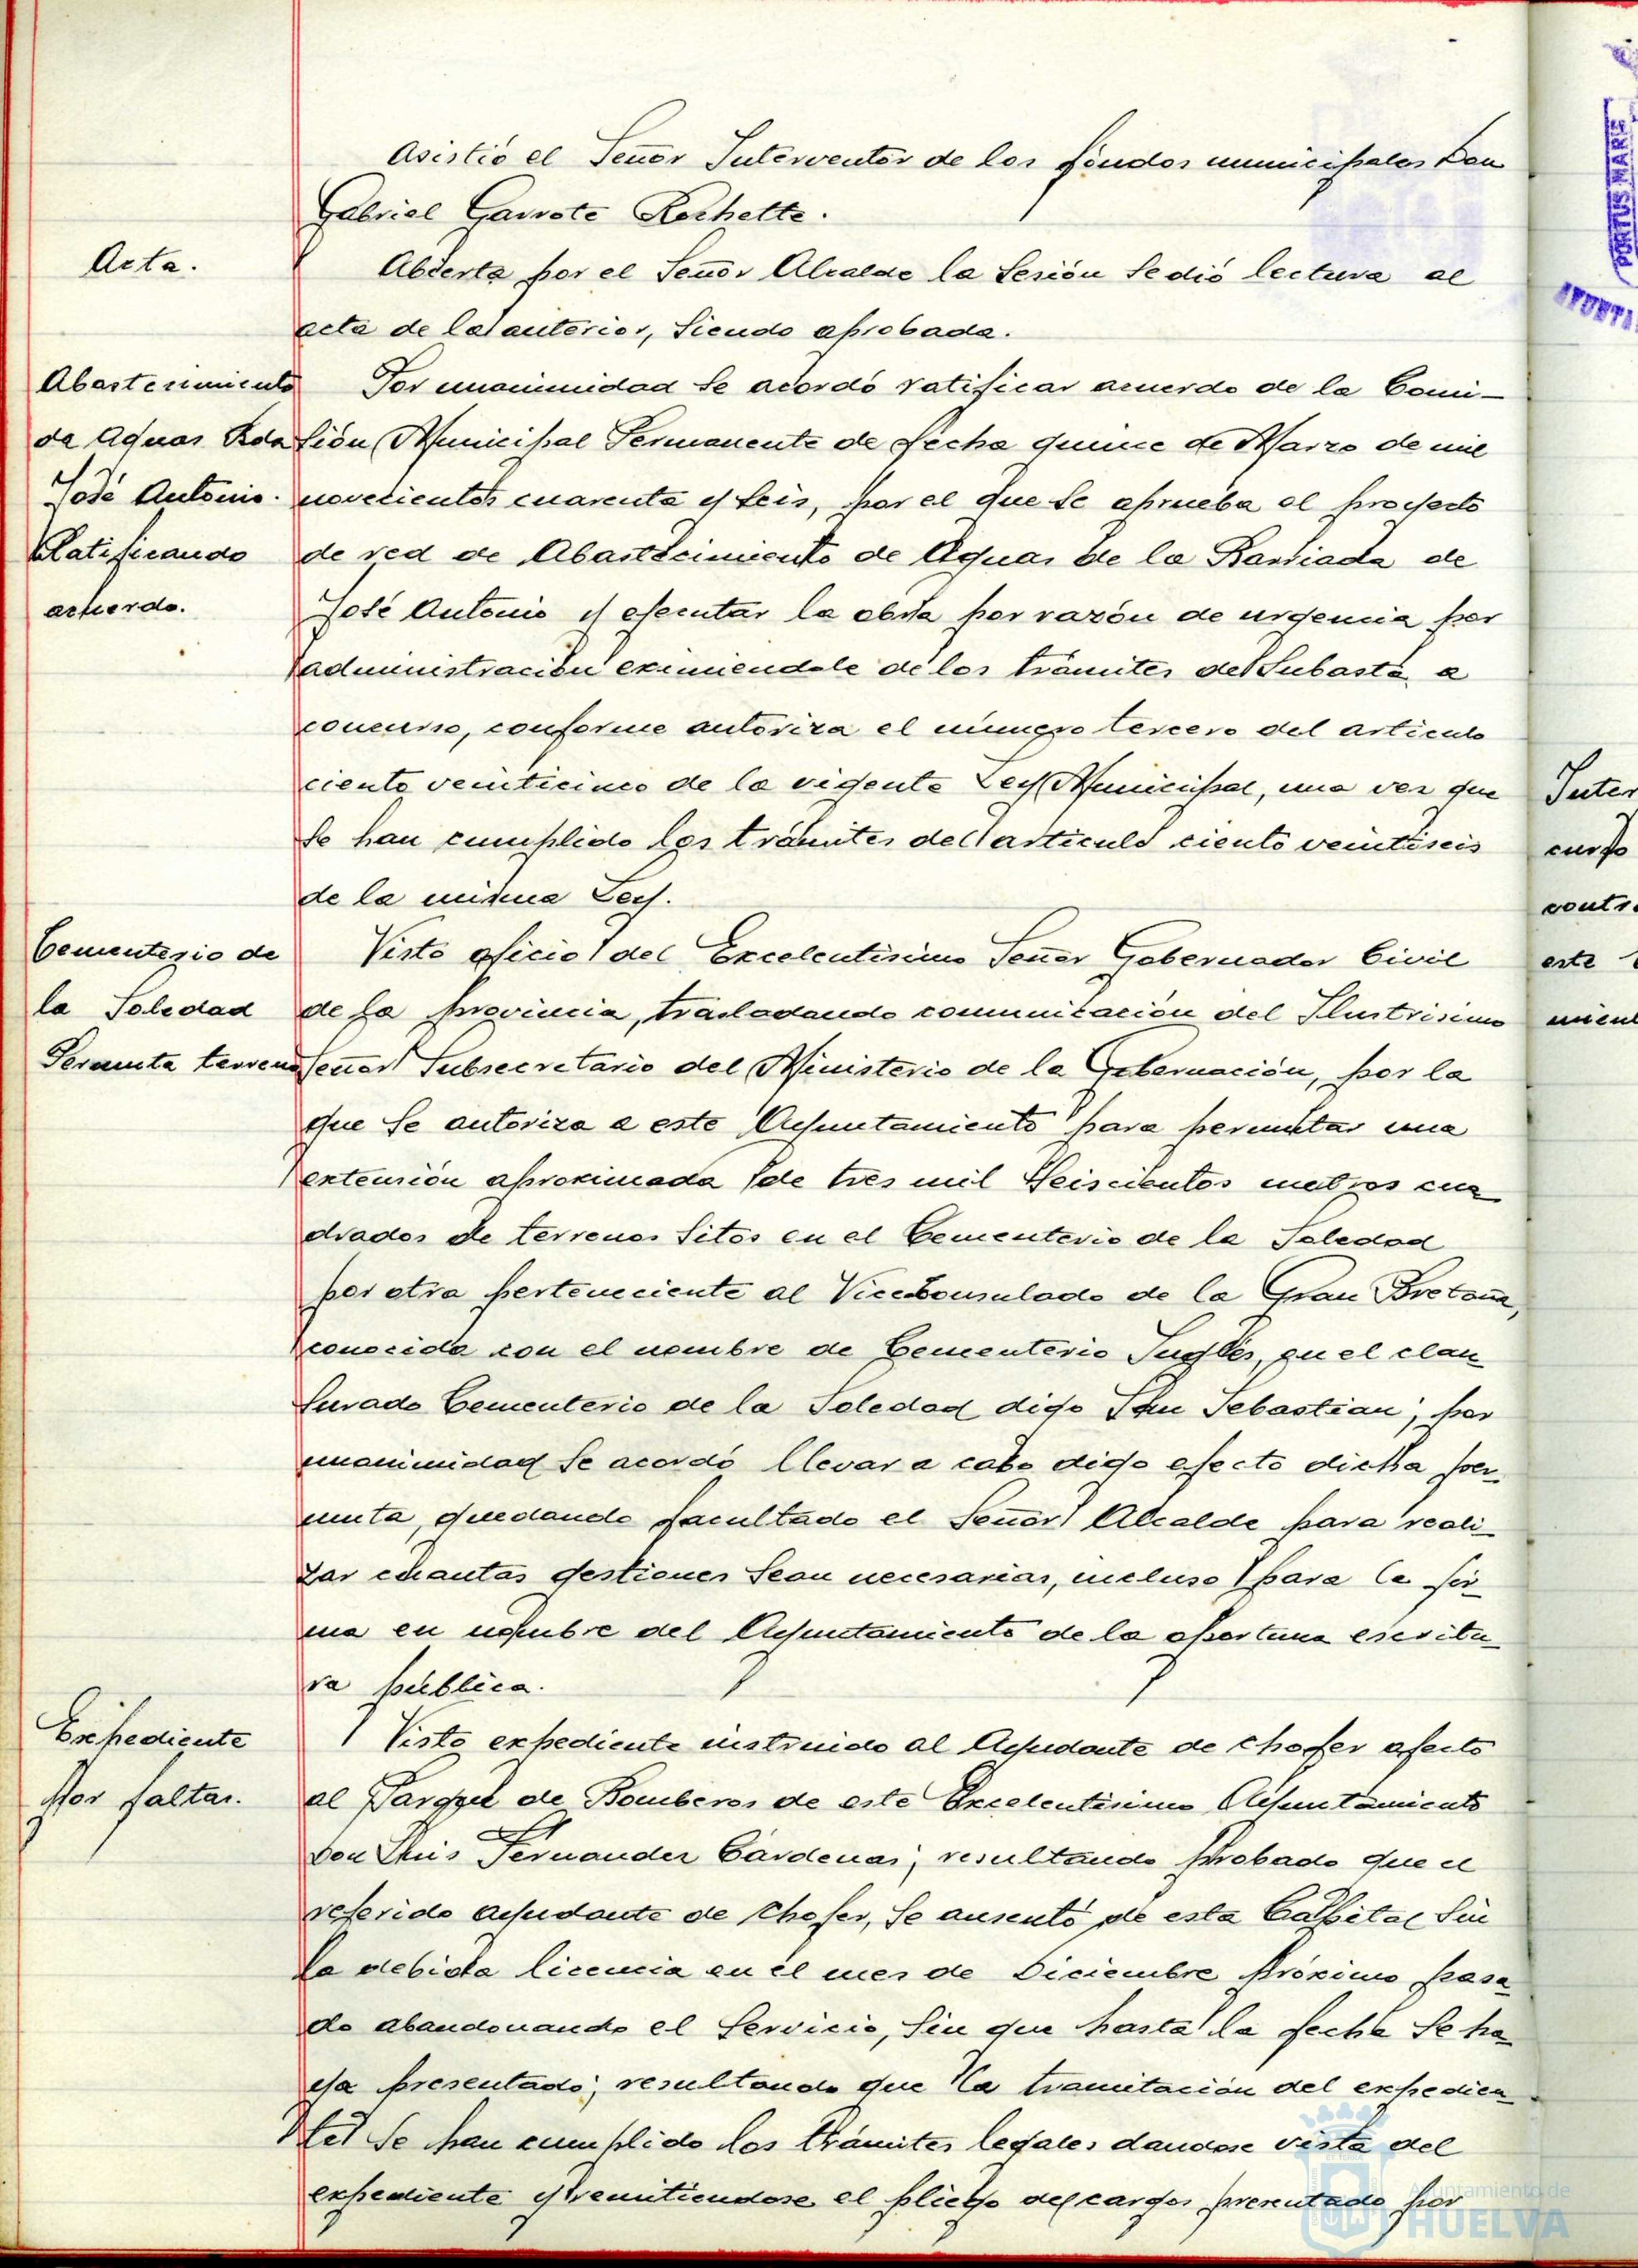 Asistió el Señor Interventor de los fondos municipales Don
Gabriel Garrote Rochette.
Acta.
Abierta por el Señor Alcalde la Sesión se dió lectura al
acta de la anterior, siendo aprobada.
Abastecimiento
de Aguas Bda
José Antonio.
Ratificando
acuerdo.
Por unanimidad se acordó ratificar acuerdo de la Comi-
sión Municipal Permanente de fecha quince de Marzo de mil
novecientos cuarenta y seis, por el que se aprueba el proyecto
de red de Abastecimiento de Aguas de la Barriada de
José Antonio y ejecutar la obra por razón de urgencia por
administración eximiendole de los trámites de Subasta o
concurso, conforme autoriza el número tercero del articulo
ciento veinticinco de la vigente Ley Municipal, una vez que
se han cumplido los trámites del articulo ciento veintiseis
de la misma Ley.
Cementerio de
la Soledad
Permuta terrenos
Visto oficio del Excelentisimo Señor Gobernador Civil
de la provincia, trasladando comunicación del Ilustrisimo
Señor Subsecretario del Ministerio de la Gobernación, por la
que se autoriza a este Ayuntamiento para permutar una
extensión aproximada de tres mil Seiscientos metros cua
drados de terrenos sitos en el Cementerio de la Soledad
por otra perteneciente al ViceConsulado de la Gran Bretaña,
conocida con el nombre de Cementerio Inglés, en el clau
surado Cementerio de la Soledad digo San Sebastian; por
unanimidad se acordó llevar a cabo digo efecto dicha per
muta, quedando facultado el Señor Alcalde para reali
zar cuantas gestiones sean necesarias, incluso para la fir
ma en nombre del Ayuntamiento de la oportuna escritu
ra pública.
Expediente
por faltas.
Visto expediente instruido al Ayudante de chofer afecto
al Parque de Bomberos de este Excelentisimo Ayuntamiento
Don Luis Fernandez Cárdenas; resultando probado que el
referido ayudante de chofer, se ausentó de esta Capital sin
la debida licencia en el mes de Diciembre próximo pasa
do abandonando el servicio, sin que hasta la fecha se ha
ya presentado; resultando que la tramitación del expedien
te se han cumplido los trámites legales dandose vista del
expediente y remitiendose el pliego de cargos presentado por
PORTUS MARIS
Inter
curso
contr
este
mien
Ayuntamiento de
HUELVA